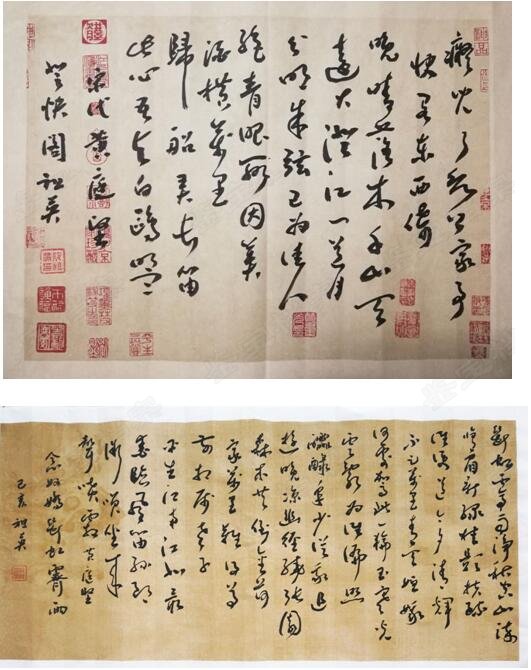 癡兒了却公家事
快閣东西倚
晚晴落木千山天
遠大澄江一道月
分明朱弦已为佳人
絶青眼聊因美
酒橫萬里
歸船弄长笛
此心吾与白鷗盟
宋代黄庭堅
登快阁 祖英
斷虹霽雨净秋空山染
修眉新绿桂影扶疏
谁便道今夕清輝
不足万里青天姮娥
何處驾此一輪玉寒光
零亂为谁偏照
醽醁年少從我追
遊晚凉幽徑绕张園
森木共倒金荷
家萬里難得尊
前相屬老子
平生江南江北最
愛臨風笛孙郎
微笑坐来
聲喷霜竹庭堅
念奴嬌斷虹霽雨
己亥祖英